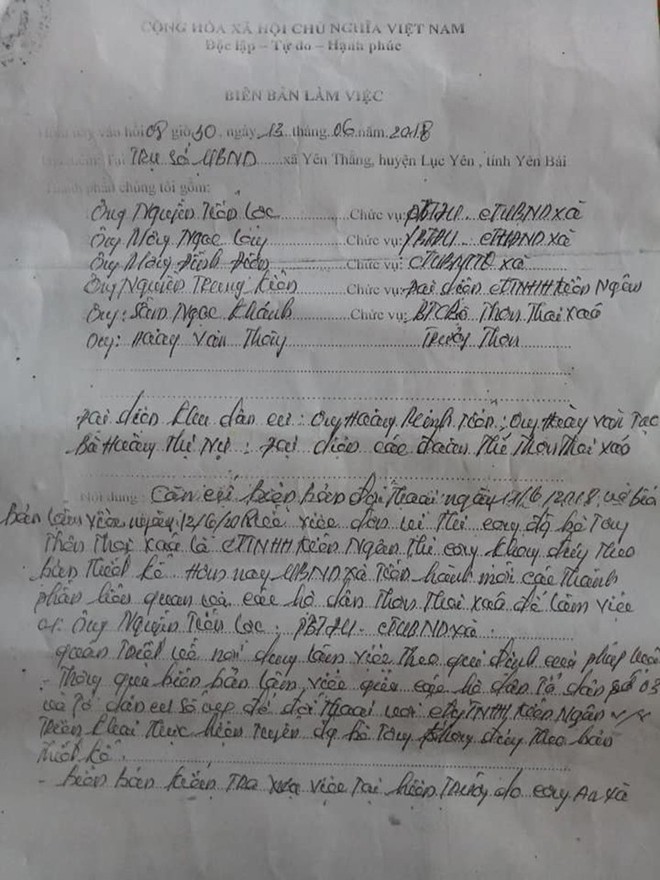 CỘNG HÒA XÃ HỘI CHỦ NGHĨA VIỆT NAM
Độc lập – Tự do – Hạnh phúc
BIÊN BẢN LÀM VIỆC
hồi 08 giờ 30, ngày 13 tháng 06 năm 2018
Tại Trụ Sở UBND xã Yên Thắng, huyện Lục Yên, tỉnh Yên Bái
Thành phần chúng tôi gồm:
Ông Nguyễn Tiến Lộc Chức vụ: PBTĐU CTUBND xã
Ông Nông Ngọc Chức vụ: PBTĐU CTHĐND xã
Ông Nông Đình Chức vụ: CTUBMTTQ xã
Ông Nguyễn Trung Kiên Chức vụ: Đại diện CTTNHH Kiên Ngân
Ông: Ngọc Khánh Chức vụ: BTCBộ Thôn Thoi Xaó
Ông: Hoàng Văn Trưởng Thôn
Đại diện khu dân cư: Ông Hoàng Minh Ông Hoàng Văn Tạc
Bà Hoàng Thị Nự: Đại diện các đoàn thể Thôn Thoi Xaó
Nội dung: Căn cứ biên bản đối thoại ngày 12/6/2018 và biên
bản làm việc ngày 12/6/2018 việc đơn vị thi công đổ bê tông
Thôn Thoi Xaó là CTTNHH Kiên Ngân thi công không đúng theo
bản thiết kế. Hôm nay UBND xã tiến hành mời các thành
phần liên quan và các hộ dân Thôn Thoi Xaó để làm việc
Ông Nguyễn Tiến Lộc: PBTĐU - CTUBND xã
quán triệt về nội dung làm việc theo qui định của pháp luật
- Thông qua biên bản làm việc giữa các hộ dân Tổ dân số 03
và Tổ dân cư số để đối thoại với cty TNHH Kiên Ngân v/v
triển khai thực hiện tuyến đg bê tông không đúng theo bản
thiết kế.
- biên bản kiểm tra việc tại hiện trường do công An xã